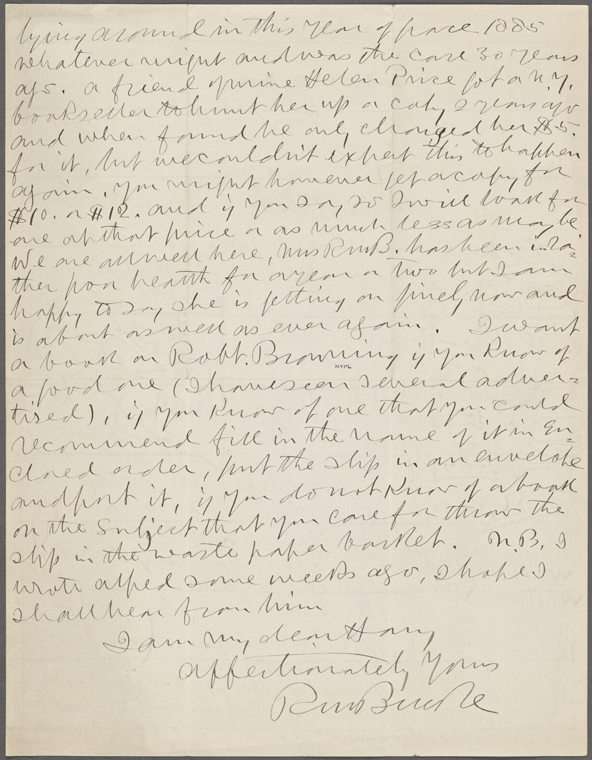 lying around in this year of grace 1885
whatever might and was the case 30 years
ago. a friend of mine Helen Price got a N.Y.
bookseller to hunt her up a copy 2 years ago
and when found he only charged her $5.
for it, but we couldn't expect this to happen
again, you might however get a copy for
$10. or $12. and if you say so I will look for
one at that price or as much less as may be
We are all well here, Mrs RMB. has been in ra=
ther poor health for a year or two but I am
happy to say she is getting on finely now and
is about as well as ever again. I want
a book on Robt. Browning if you know of
NYPL
a good one (I have seen several adver=
tised), if you know of one that you could
recommend fill in the name of it in en=
closed order, put the slip in an envelope
and post it, if you do not know of a book
on the subject that you care for throw the
slip in the waste paper basket. N.B. I
wrote alfred some weeks ago, I hope I
shall hear from him
I am my dear Harry
affectionately Yours
RM Bucke